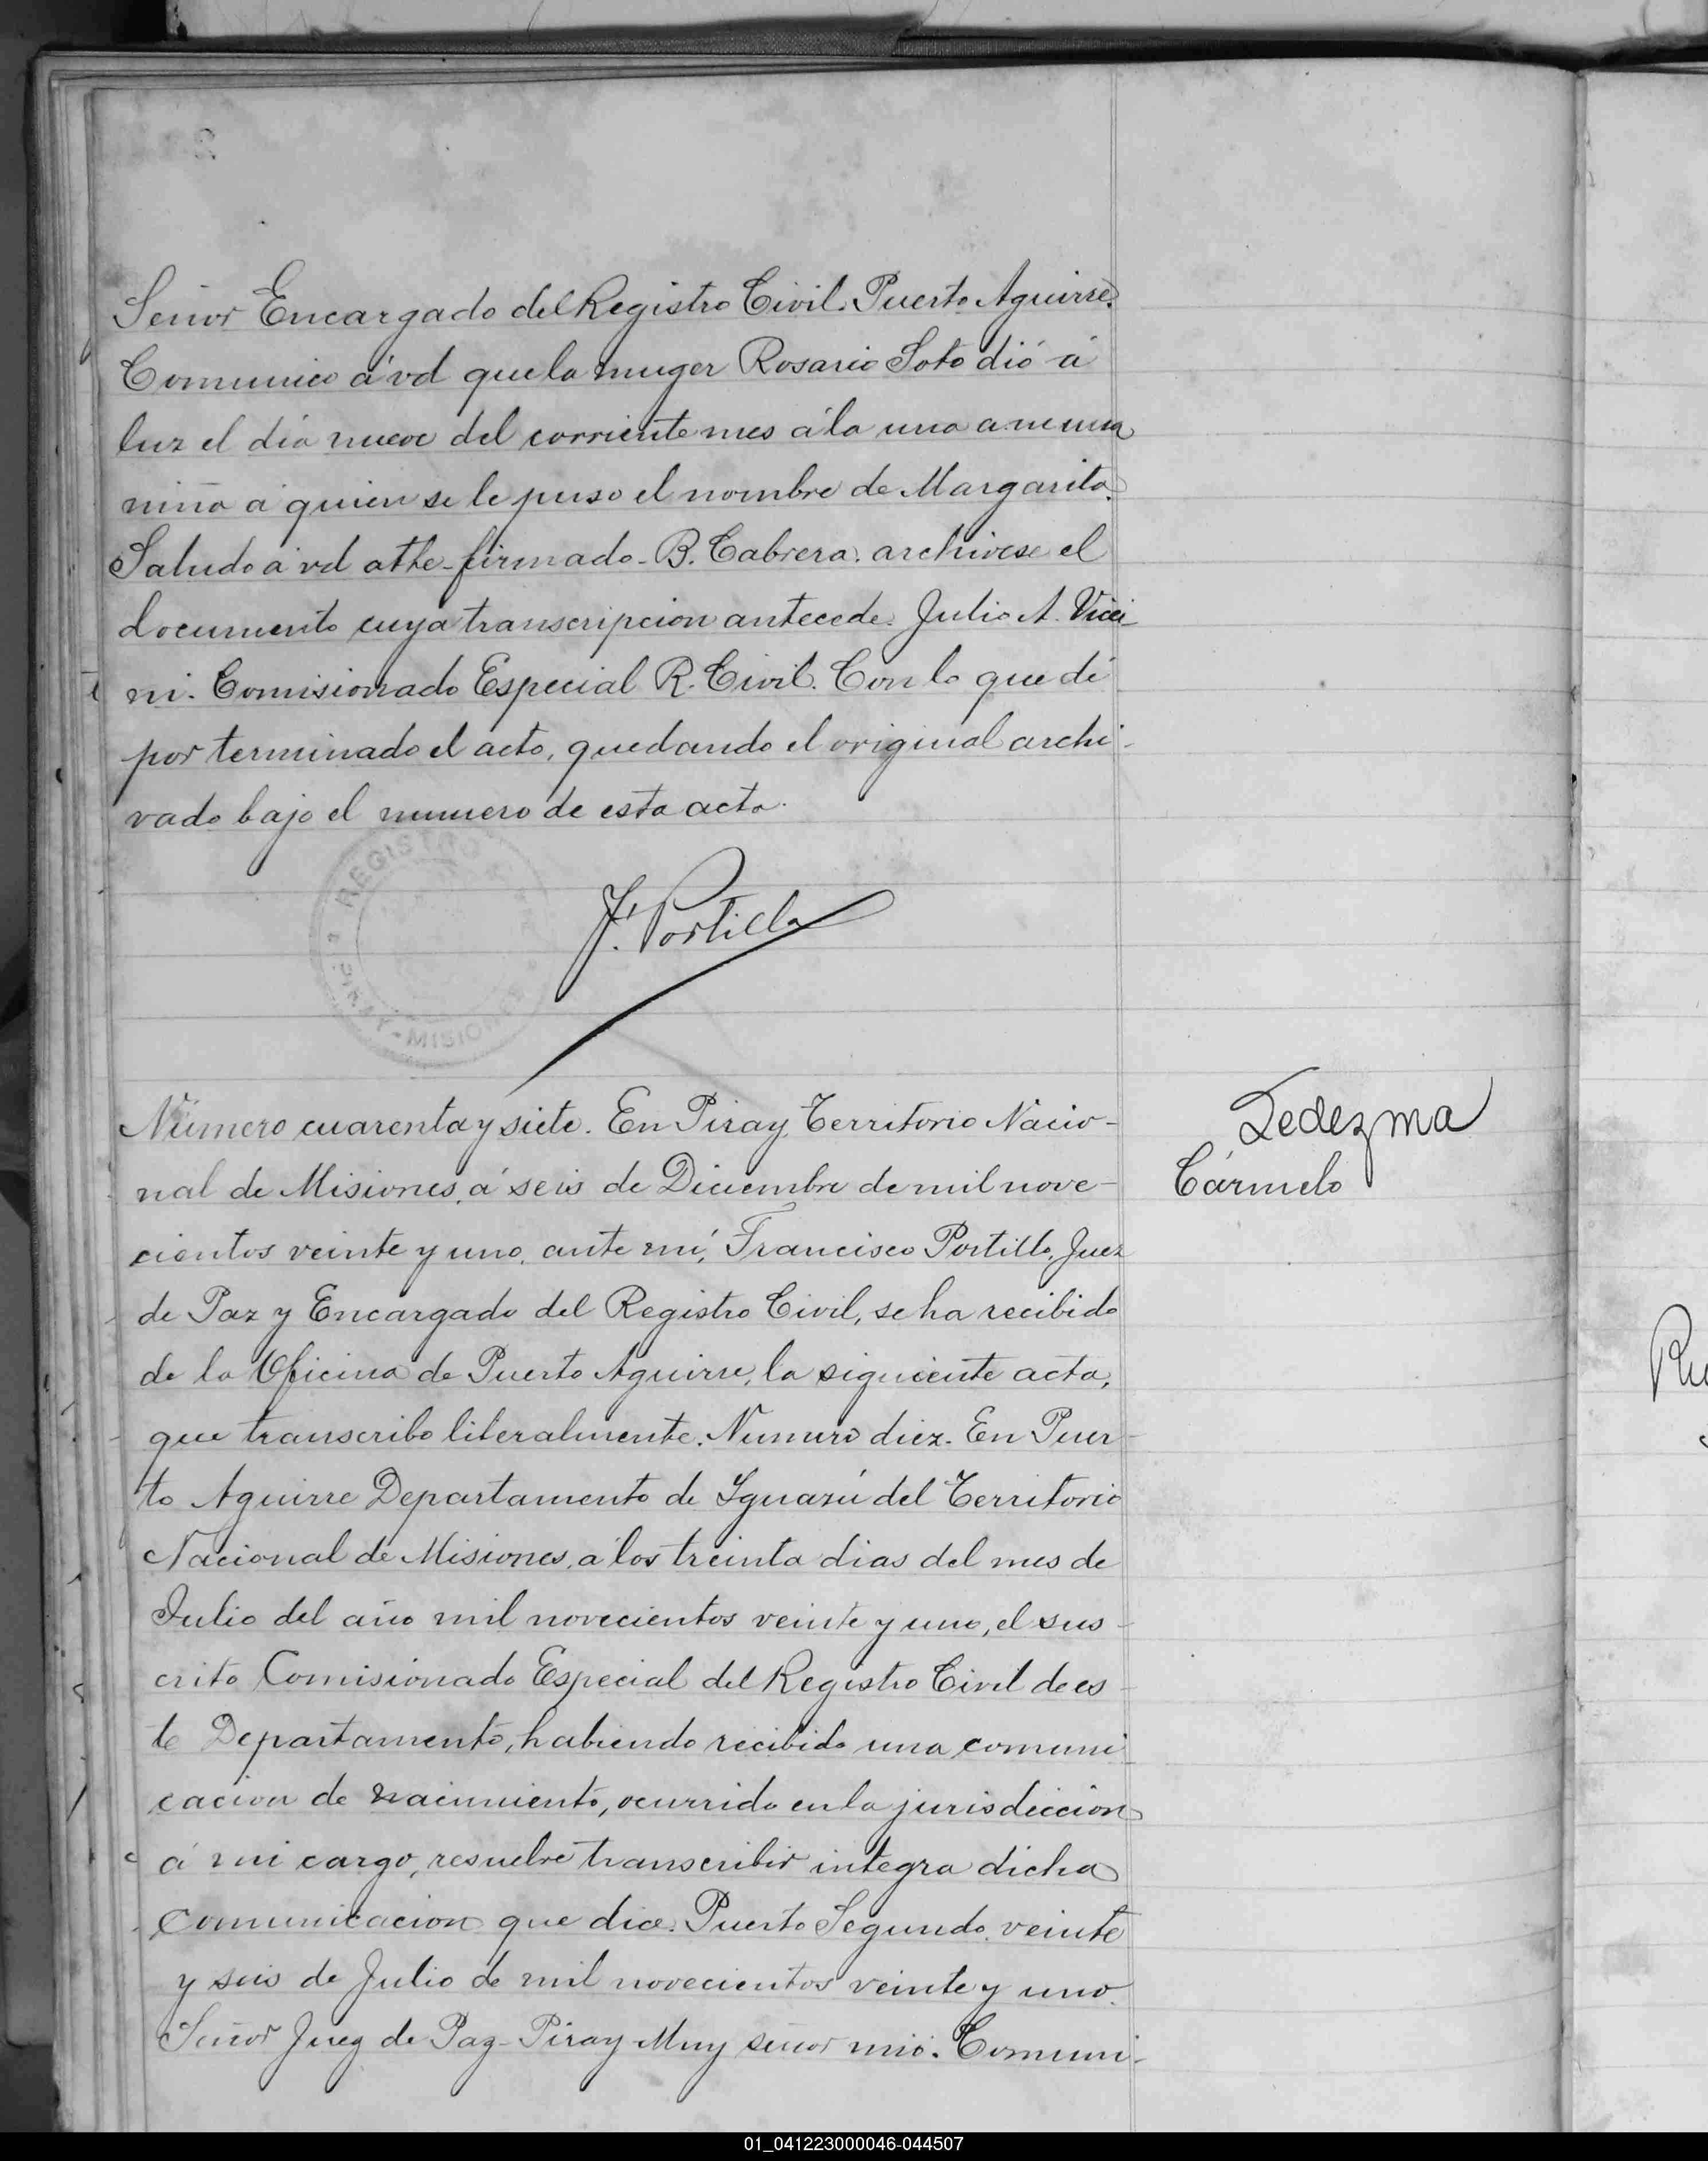 Señor Encargado del Registro Civil. Puerto Aguirre.
Comunico á vd que la muger Rosario Soto dió á
luz el dia nueve del corriente mes á la una a.m una
niña a quien se le puso el nombre de Margarita.
Saludo á vd atte-firmado-B. Cabrera. archivese el
documento cuya transcripcion antecede. Julio A. Vicci-
ni. Comisionado Especial R. Civil. Con lo que di
por terminado el acto, quedando el original archi-
vado bajo el numero de esta acta.
REGISTRO
F. Portillo
PIRAY-MISIONES
Número cuarenta y siete. En Piray, Territorio Nacio-
nal de Misiones, á seis de Diciembre de mil nove-
cientos veinte y uno, ante mí, Francisco Portillo, Juez
de Paz y Encargado del Registro Civil, se ha recibido
de la Oficina de Puerto Aguirre, la siguiente acta,
que transcribo literalmente. Numero diez. En Puer-
to Aguirre Departamento de Yguazú del Territorio
Nacional de Misiones, a los treinta dias del mes de
Julio del año mil novecientos veinte y uno, el sus-
crito Comisionado Especial del Registro Civil de es-
te Departamento, habiendo recibido una comuni-
cacion de nacimiento, ocurrido en la jurisdiccion
á mi cargo, resuelve transcribir integra dicha
comunicacion que dice. Puerto Segundo, veinte
y seis de Julio de mil novecientos veinte y uno.
Señor Juez de Paz-Piray-Muy señor mio. Comuni-
Ledezma
Cármelo
01_041223000046-044507